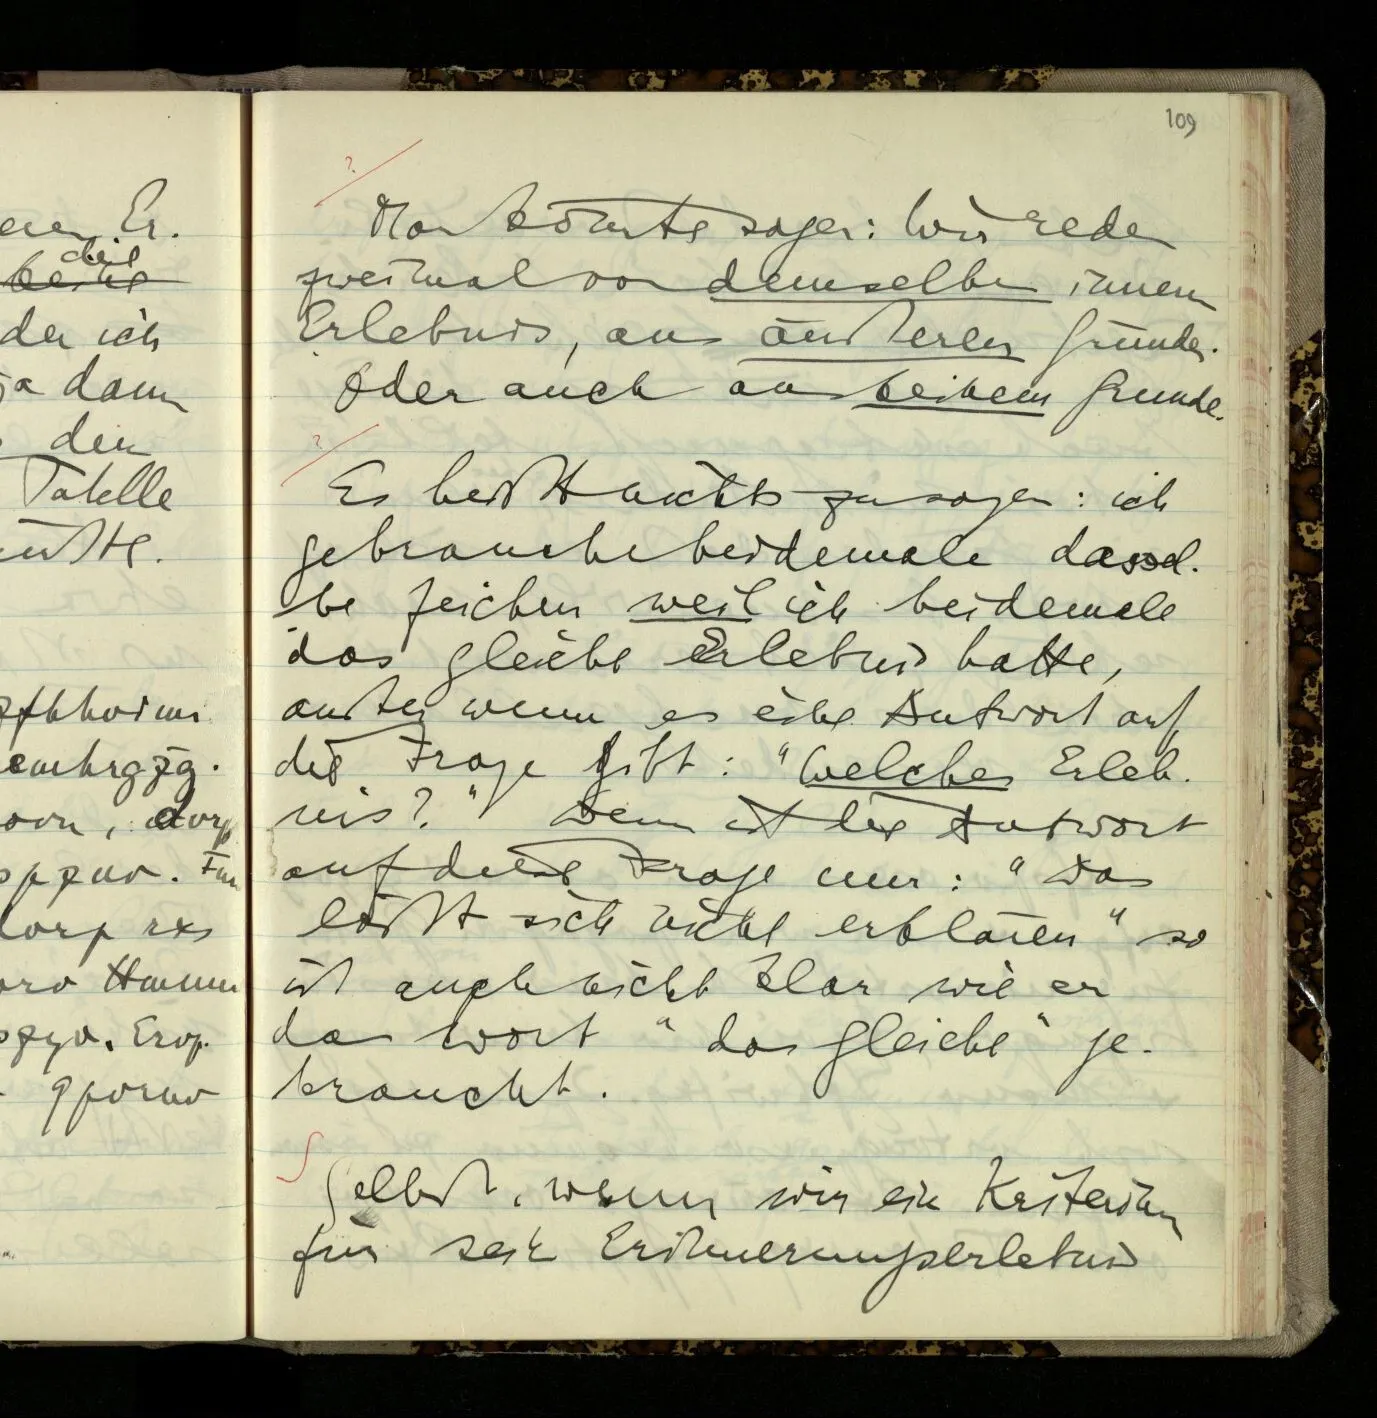 Er.
die
der ich
ja dann
den
Tabelle
109
?/
Man könnte sagen: Wir reden
zweimal von demselben innern
Erlebnis, aus äußeren Gründen.
Oder auch aus keinem Grunde.
?/
Es heißt nichts zu sagen: ich
gebrauche beidemale dassel-
be Zeichen weil ich beidemale
das gleiche Erlebnis hatte,
außer wenn es eine Antwort auf
die Frage gibt: "Welches Erleb-
nis?" Denn ist die Antwort
auf diese Frage nur: "Das
läßt sich nicht erklären" so
ist auch nicht klar wie er
das Wort "das gleiche" ge-
braucht.
S
Selbst, wenn wir ein Kriterium
für sein Erinnerungserlebnis